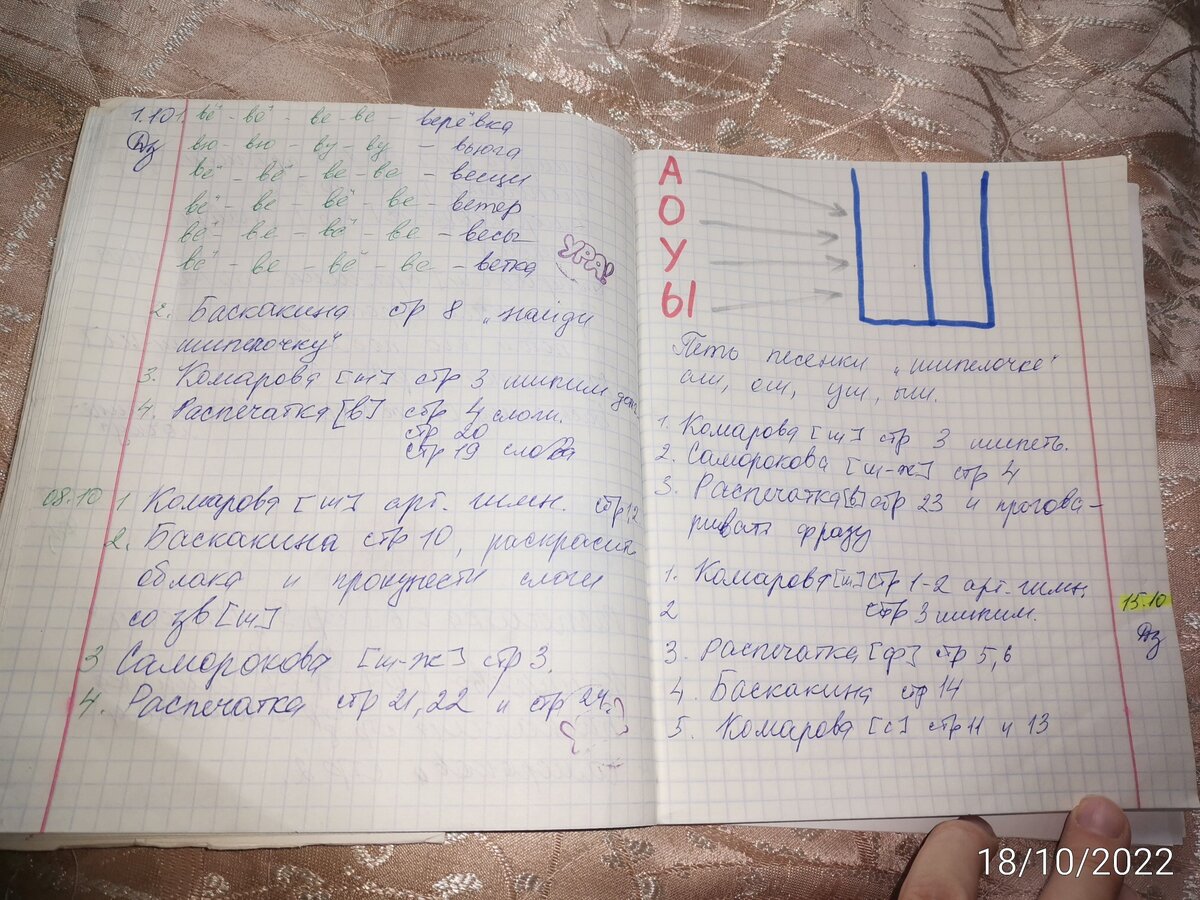 1.10 вё - вё - ве - ве - верёвка
Дз вю - вю - ву - ву - вьюга
вё - вё - ве - ве - вещи
вё - ве - вё - ве - ветер
вё - ве - вё - ве - весы
вё - ве - вё - ве - ветка
УРА!
2. Баскакина стр 8 „найди
шипелочку"
3. Комарова [ш] стр 3 шипим
4. Распечатка [в] стр 4 слоги.
стр 20
стр 19 слова
08.10 1 Комарова [ш] арт. гимн. стр 1,2
2. Баскакина стр 10, раскрасить
облака и произнести слоги
со зв [ш]
3 Саморокова [ш-ж] стр 3.
4. Распечатка стр 21, 22 и стр 24.
А
О
У
Ы
Петь песенки „шипелочке"
аш, ош, уш, ыш.
1. Комарова [ш] стр 3 шипеть.
2. Саморокова [ш-ж] стр 4
3. Распечатка [в] стр 23 и прогова-
ривать фразу
1. Комарова [ш] стр 1-2 арт-гимн.
2 стр 3 шипим.
15.10
Дз
3. Распечатка [ф] стр 5, 6
4. Баскакина стр 14
5. Комарова [с] стр 11 и 13
18/10/2022